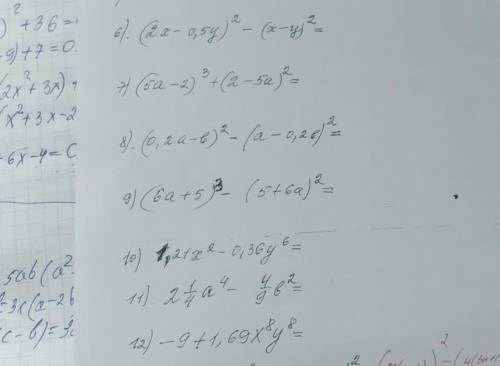 )² + 36 =
-9) + 7 = 0.
(2x² + 3x)
(x² + 3x - 2
+ 6x - 4 = 0
5ab(a²
3c(a - 2b
c - b) =
6). (2x - 0,5y)² - (x - y)² =
7) (5a - 2)³ + (2 - 5a)² =
8). (0,2a - b)² - (a - 0,2b)² =
9) (6a + 5)³ - (5 + 6a)² =
10) 1,21x² - 0,36y⁶ =
11) 2 1/4 a⁴ - 4/9 b² =
12) - 9 + 1,69x⁸y⁸ =